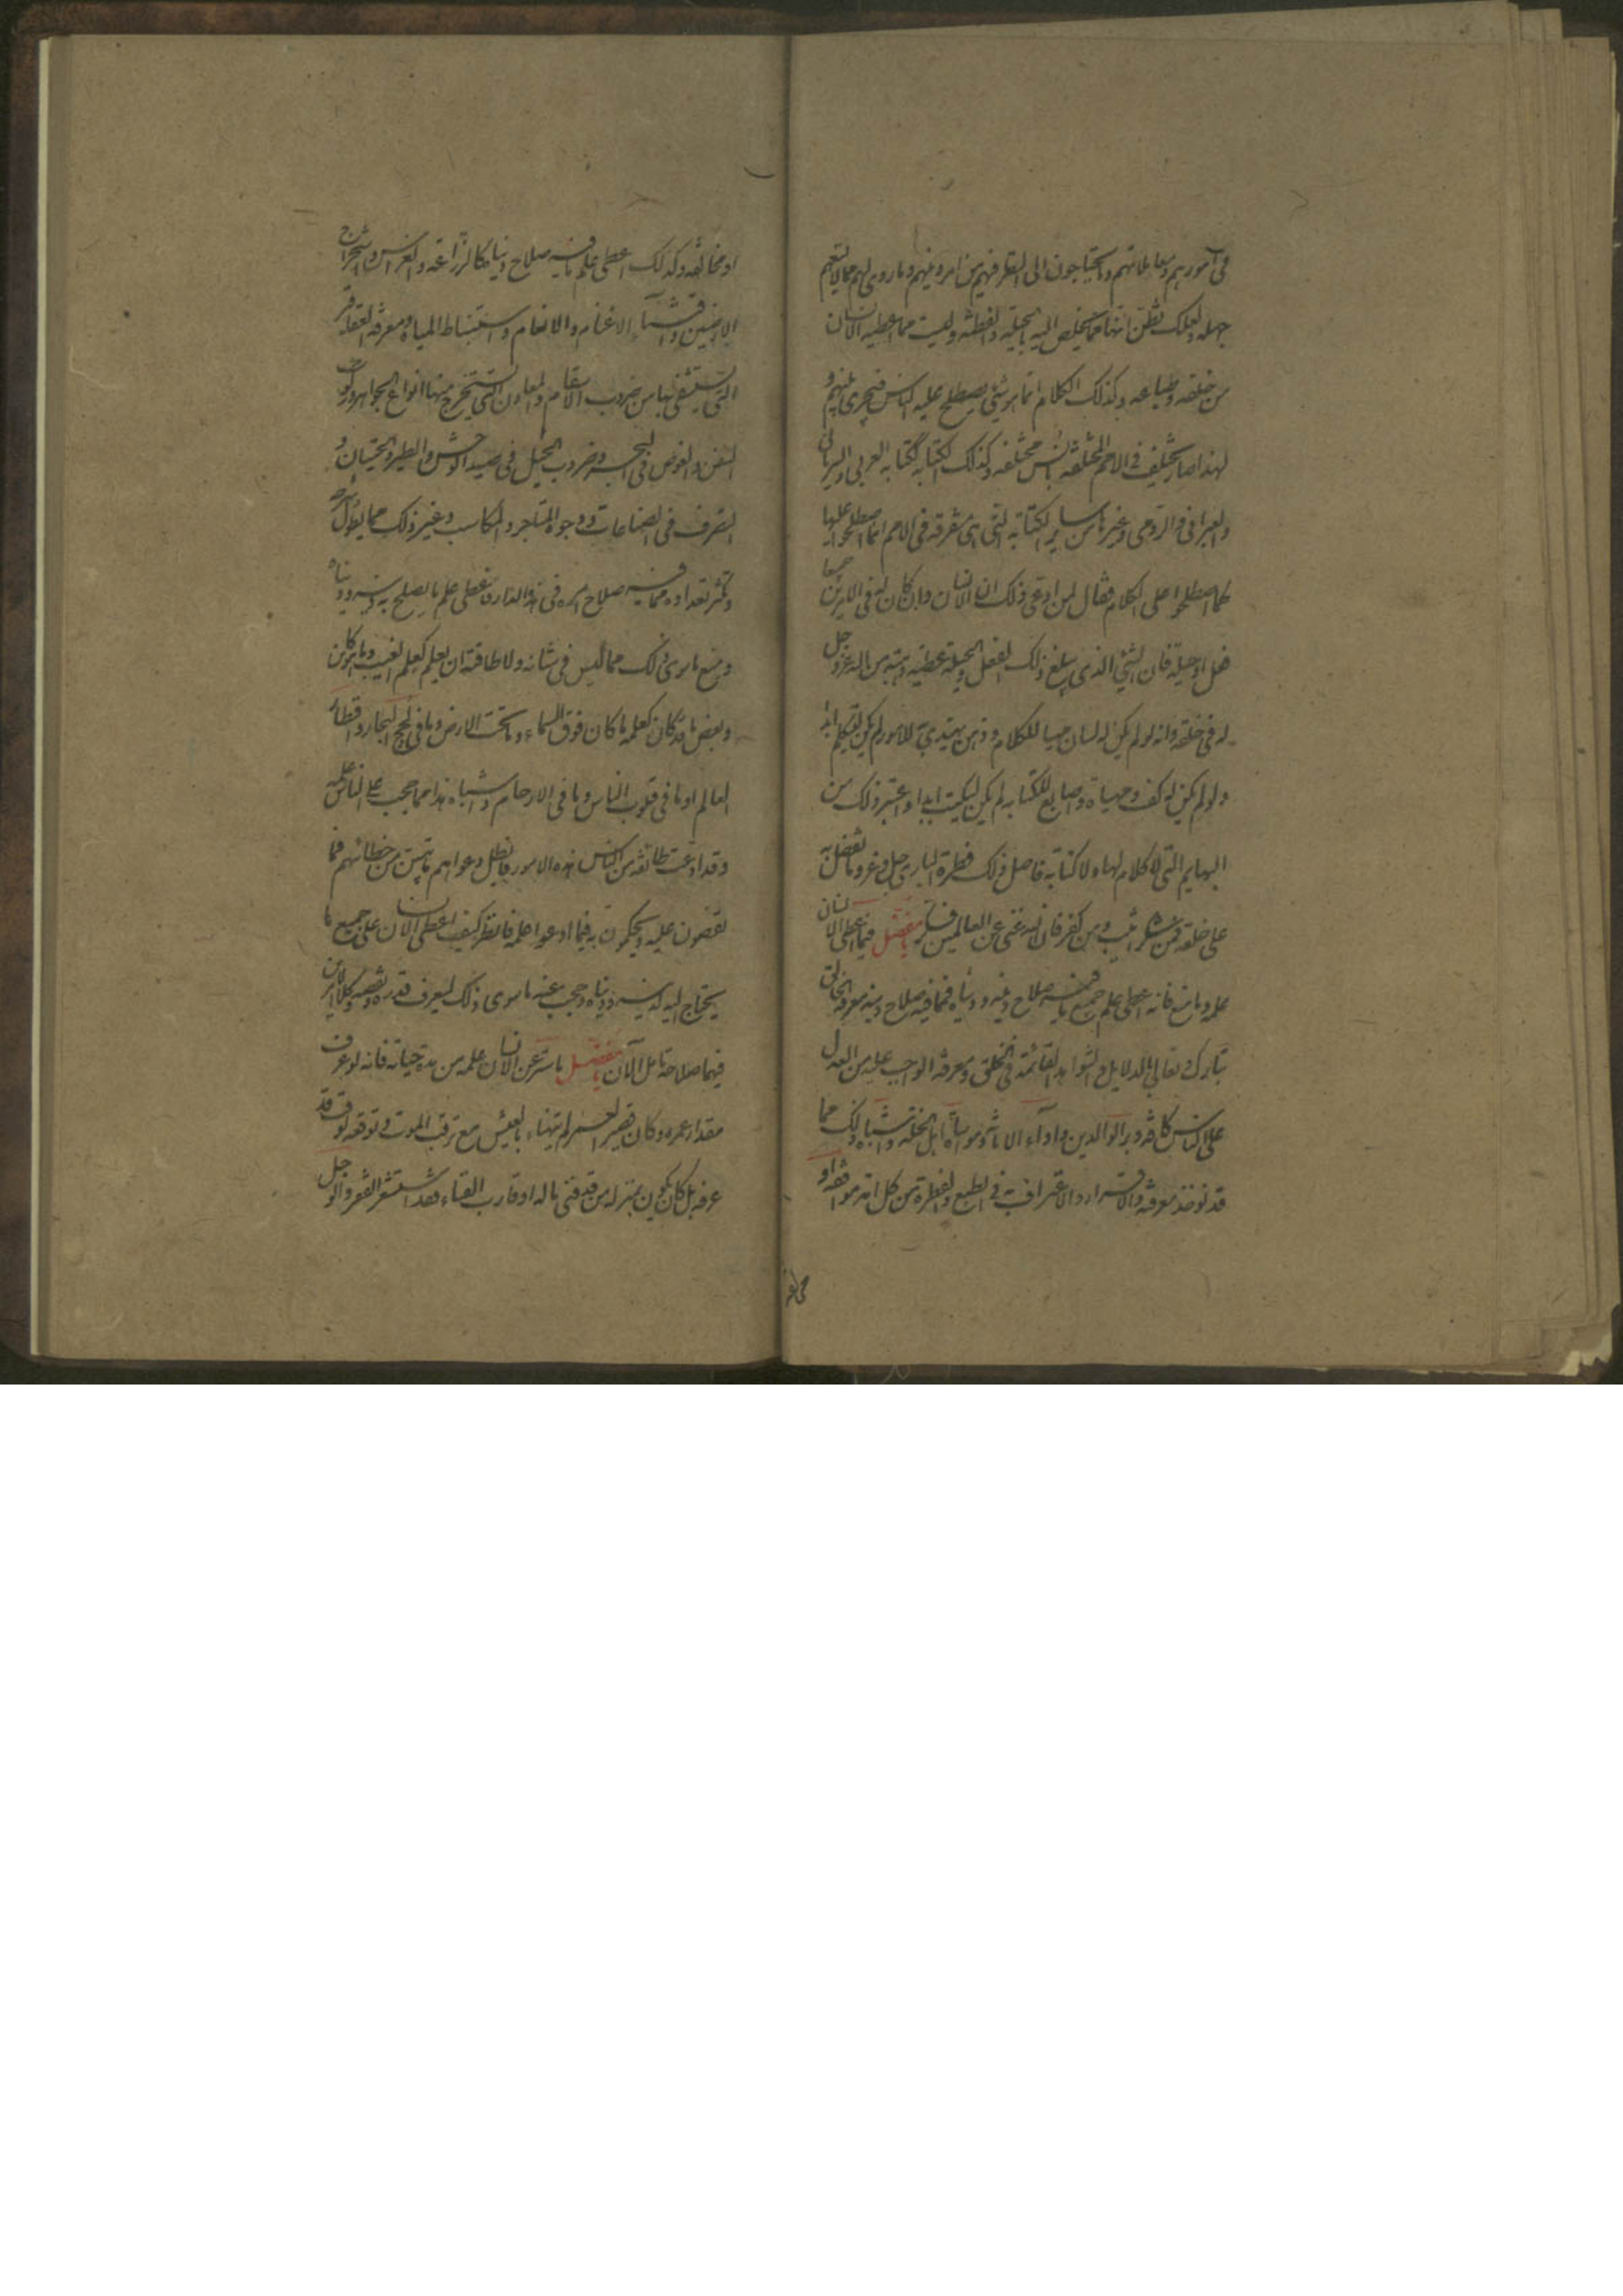 في امورهم ومعاملاتهم وما يحتاجون الى النظر فيه من امر دينهم وما روي لهم مما لا يسعهم
جهله ولعلك تظن انها مما يخلص اليه بالحيلة والفطنة وليست مما اعطيه الانسان
من خلقه وطباعه وكذلك الكلام انما هو شيء يصطلح عليه الناس فيجري بينهم و
لهذا صار يختلف في الامم المختلفة بالسن مختلفة وكذلك الكتابة ككتابة العربي والسرياني
والعبراني والرومي وغيرها من ساير الكتابة التي هي متفرقة في الامم انما اصطلحوا عليها
كما اصطلحوا على الكلام فيقال لمن ادعى ذلك ان الانسان وان كان له في الامرين جميعا
فعل او حيلة فان الشيء الذي يبلغ به ذلك الفعل والحيلة عطية وهبة من الله عز وجل
له في خلقه فانه لو لم يكن له لسان مهيا للكلام وذهن يهتدي به للامور لم يكن ليتكلم ابدا
ولو لم يكن له كف مهياة واصابع للكتابة لم يكن ليكتب ابدا واعتبر ذلك من
البهايم التي لا كلام لها ولا كتابة فاصل ذلك فطرة الباري جل وعز وما تفضل به
على خلقه فمن شكر اثيب ومن كفر فان الله غني عن العالمين فكر يا مفضل فيما اعطي الانسان
علمه وما منع فانه اعطي علم جميع ما فيه صلاح دينه ودنياه فمما فيه صلاح دينه معرفة الخالق
تبارك وتعالى بالدلايل والشواهد القائمة في الخلق ومعرفة الواجب عليه من العدل
على الناس كافة وبر الوالدين واداء الامانة ومواساة اهل الخلة واشباه ذلك مما
قد توجد معرفته والاقرار والاعتراف به في الطبع والفطرة من كل امة موافقة او
مخالفة
او مخالفة وكذلك اعطي علم ما فيه صلاح دنياه كالزراعة والغراس واستخراج
الارضين واقتناء الاغنام والانعام واستنباط المياه ومعرفة العقاقير
التي يستشفى بها من ضروب الاسقام والمعادن التي يستخرج منها انواع الجواهر وركوب
السفن والغوص في البحر وضروب الحيل في صيد الوحش والطير والحيتان و
التصرف في الصناعات ووجوه المتاجر والمكاسب وغير ذلك مما يطول شرحه
ويكثر تعداده مما فيه صلاح امره في هذه الدار فاعطي علم ما يصلح به دينه ودنياه
ومنع ما سوى ذلك مما ليس في شانه ولا طاقته ان يعلم كعلم الغيب وما هو كاين
وبعض ما قد كان كعلم ما كان فوق السماء وما تحت الارض وما في لجج البحار واقطار
العالم وما في قلوب الناس وما في الارحام واشباه هذا مما حجب على الناس علمه
وقد ادعت طائفة من الناس هذه الامور فابطل دعواهم ما يبين من خطائهم فيما
يقضون عليه ويحكمون به فيما ادعوا علمه فانظر كيف اعطي الانسان علم جميع ما
يحتاج اليه لدينه ودنياه وحجب عنه ما سوى ذلك ليعرف قدره ونقصه وكلا الامرين
فيها صلاحه تامل الآن يا مفضل ما ستر عن الانسان علمه من مدة حياته فانه لو عرف
مقدار عمره وكان قصير العمر لم يتهناء بالعيش مع ترقب الموت وتوقعه لوقت قد
عرفه بل كان يكون بمنزلة من قد فنى ماله او قارب الفناء فقد استشعر الفقر والوجل